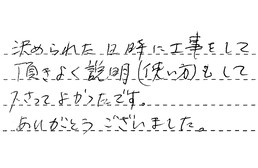 決められた日時に工事をして
頂きよく説明(使い方)もして
下さってよかったです。
ありがとうございました。